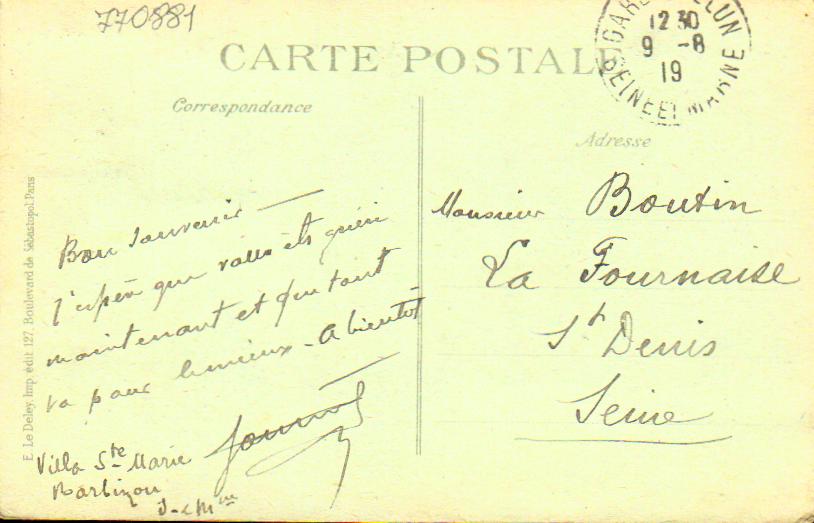 770881
CARTE POSTALE
GARE MELUN
12 30
9 -8
19
SEINE ET MARNE
Correspondance
Adresse
Bon souvenir
J'espère que vous êts guéri
maintenant et que tout
va pour le mieux - A bientôt
Villa Ste Marie
Barbizon
S-et-Mne
Monsieur Boutin
La Fournaise
St Denis
Seine
E. Le Deley, Imp. édit. 127, Boulevard de Sébastopol, Paris